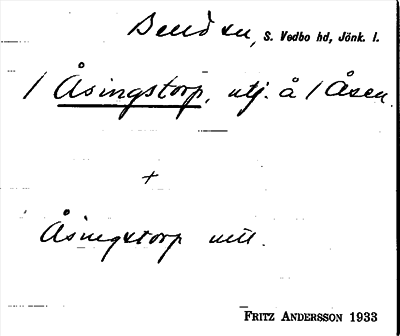 S. Vedbo hd, Jönk. l.
1 Åsingstorp, utj. å 1 Åsen.
+
Åsingstorp utt.
FRITZ ANDERSSON 1933